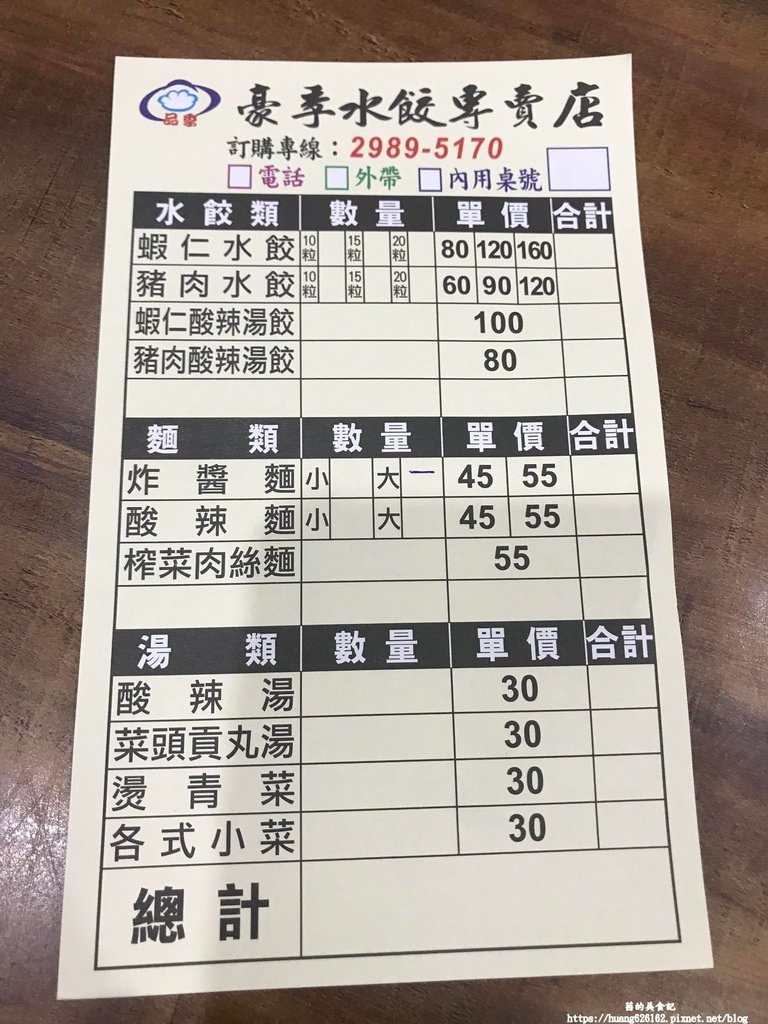 品豪
豪季水餃專賣店
訂購專線：2989-5170
電話 外帶 內用桌號
水餃類 數量 單價 合計
蝦仁水餃 10粒 15粒 20粒 80 120 160
豬肉水餃 10粒 15粒 20粒 60 90 120
蝦仁酸辣湯餃 100
豬肉酸辣湯餃 80
麵類 數量 單價 合計
炸醬麵 小 大 一 45 55
酸辣麵 小 大 45 55
榨菜肉絲麵 55
湯類 數量 單價 合計
酸辣湯 30
菜頭貢丸湯 30
燙青菜 30
各式小菜 30
總計
茜的美食記
https://huang626162.pixnet.net/blog